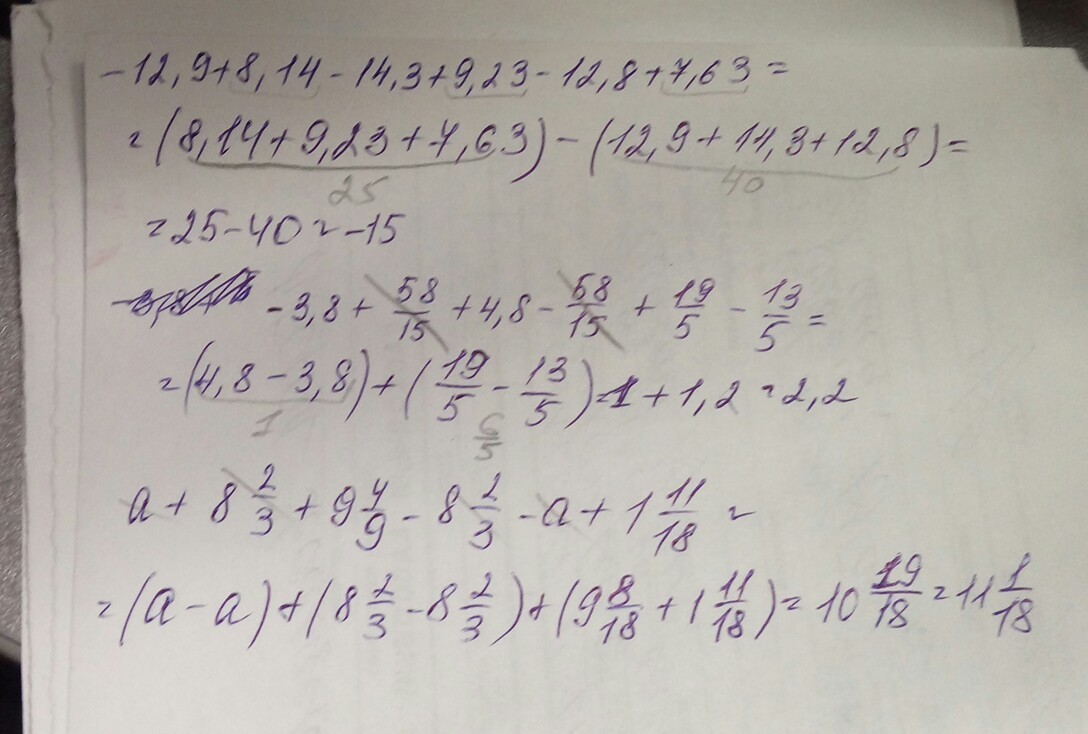 -12,9+8,14-14,3+9,23-12,8+7,63=
=(8,14+9,23+7,63)-(12,9+14,3+12,8)=
25 40
=25-40=-15
-3,8+58/15+4,8-58/15+19/5-13/5=
=(4,8-3,8)+(19/5-13/5)=1+1,2=2,2
1 6/5
a+8 2/3+9 4/9-8 2/3-a+1 11/18=
=(a-a)+(8 2/3-8 2/3)+(9 8/18+1 11/18)=10 19/18=11 1/18